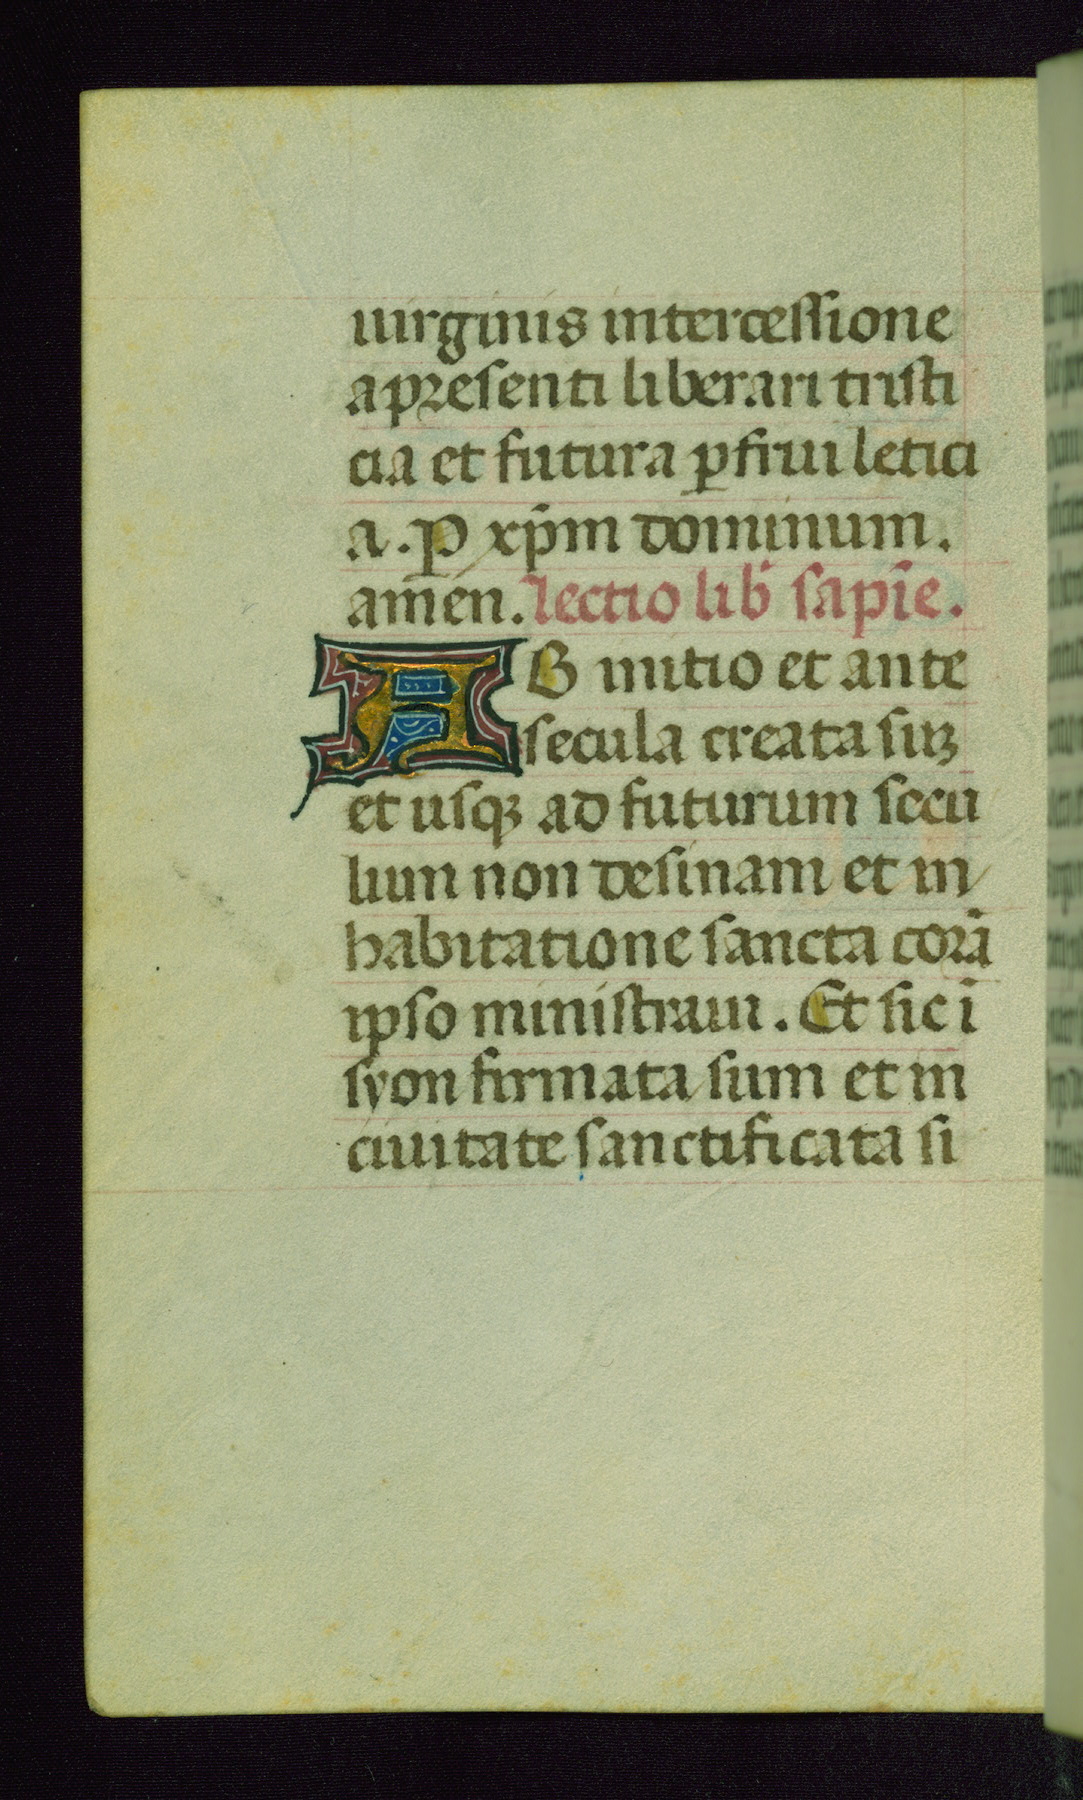 uirginis intercessione
a presenti liberari tristi
cia et futura ꝑfrui letici
a. ꝑ xp̄m dominum.
amen. lectio lib̄ sapīe.
AB initio et ante
secula creata suꝫ
et usqꝫ ad futurum secu
lum non desinam et in
habitatione sancta corā
ipso ministraui. Et sic ī
syon firmata sum et in
ciuitate sanctificata si